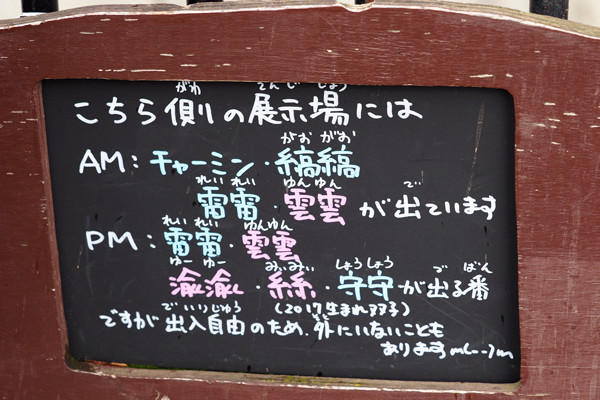 がわ てんじ じょう
こちら側の展示場には
がお がお
AM：チャーミン・縞縞
れい れい ゆんゆん で
雷雷・雲雲 が出ています
れい れい ゆんゆん
PM：雷雷・雲雲
ゆー ゆー みぃみぃ しょうしょう で ばん
渝渝・絲・守守が出る番
で いりじゆう (2017生まれ双子)
ですが出入自由のため、外にいないことも
あります m(--)m